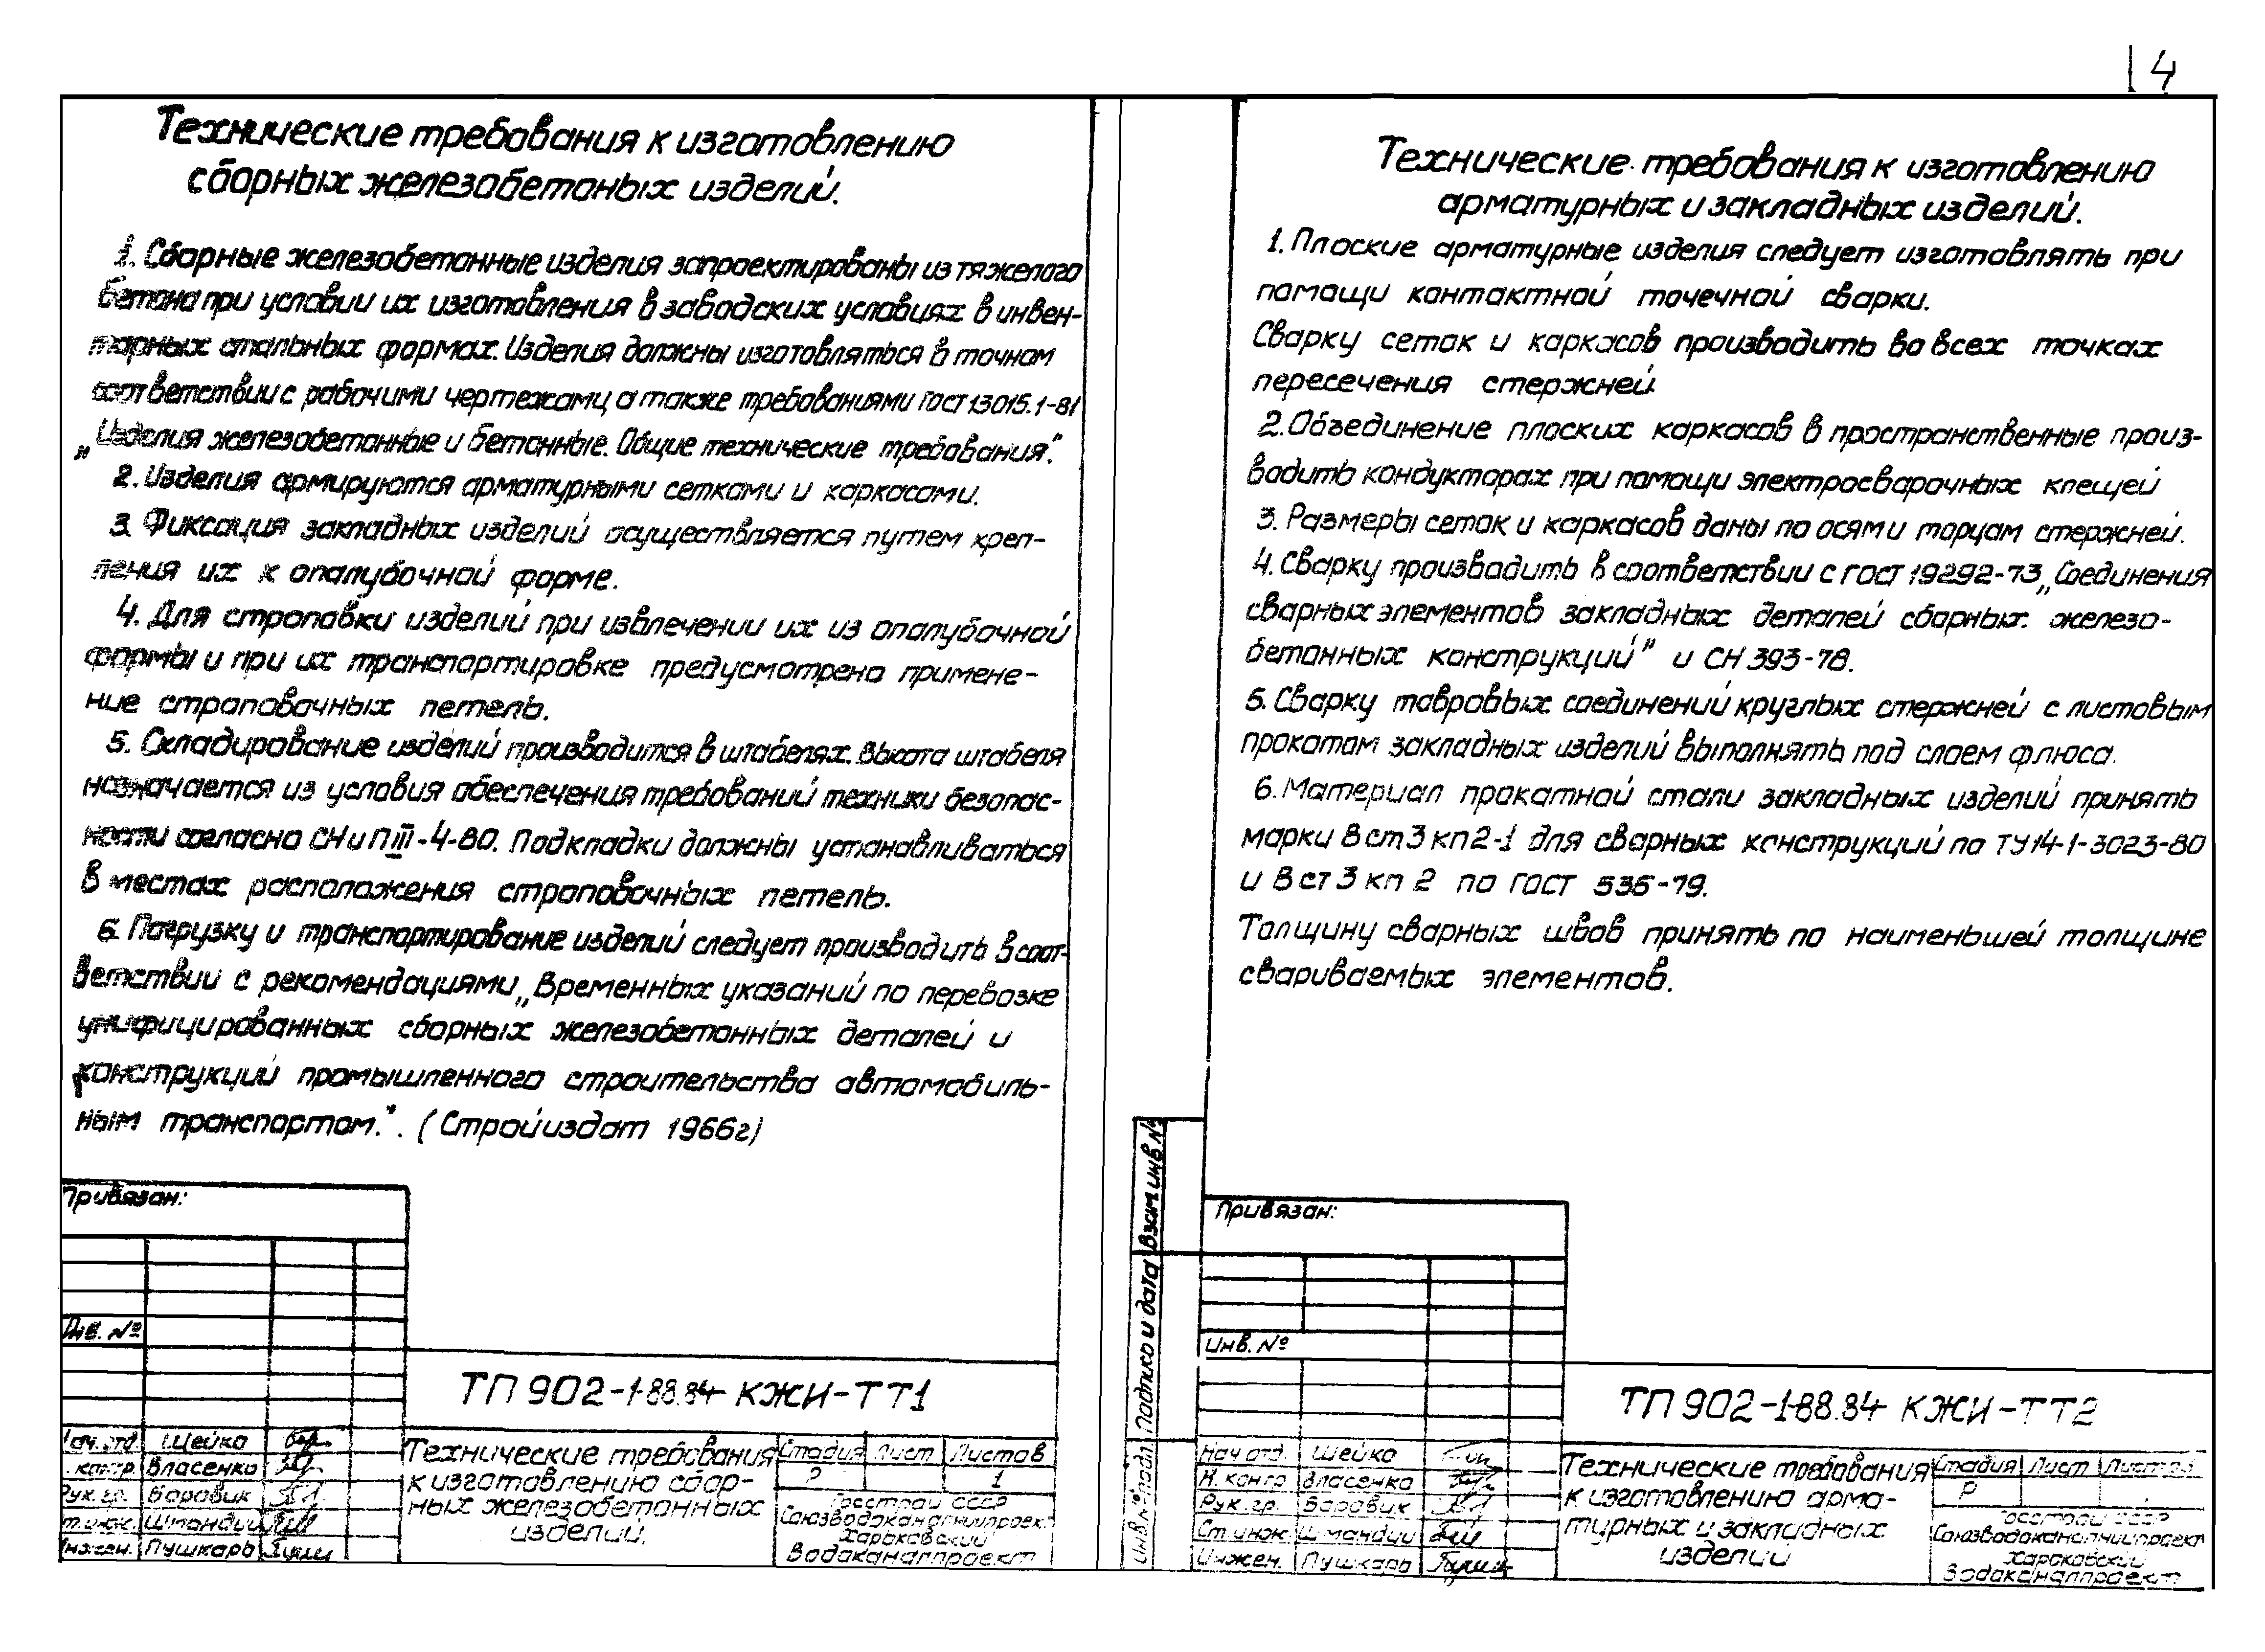 4
Технические требования к изготовлению
сборных железобетоных изделий.
1. Сборные железобетонные изделия запроектированы из тяжелого
бетона при условии их изготовления в заводских условиях в инвен-
тарных стальных формах. Изделия должны изготовляться в точном
соответствии с рабочими чертежами, а также требованиями ГОСТ 13015.1-81
„Изделия железобетонные и бетонные. Общие технические требования".
2. Изделия армируются арматурными сетками и каркасами.
3. Фиксация закладных изделий осуществляется путем креп-
ления их к опалубочной форме.
4. Для строповки изделий при извлечении их из опалубочной
формы и при их транспортировке предусмотрено примене-
ние строповочных петель.
5. Складирование изделий производится в штабелях. Высота штабеля
назначается из условия обеспечения требований техники безопас-
ности согласно СНиП III-4-80. Подкладки должны устанавливаться
в местах расположения строповочных петель.
6. Погрузку и транспортирование изделий следует производить в соот-
ветствии с рекомендациями „Временных указаний по перевозке
унифицированных сборных железобетонных деталей и
конструкций промышленного строительства автомобиль-
ным транспортом.". (Стройиздат 1966г)
Привязан:
Инв. №
ТП 902-1-88.84 КЖИ-ТТ1
Нач. отд. Шейко
Н. контр. Власенко
Рук. гр. Боровик
Ст. инж.
Инжен. Пушкарь
Технические требования
к изготовлению сбор-
ных железобетонных
изделий.
Стадия Лист Листов
Р 1
Госстрой СССР
Союзводоканалниипроект
Харьковский
Водоканалпроект
Технические требования к изготовлению
арматурных и закладных изделий.
1. Плоские арматурные изделия следует изготовлять при
помощи контактной точечной сварки.
Сварку сеток и каркасов производить во всех точках
пересечения стержней.
2. Объединение плоских каркасов в пространственные произ-
водить кондукторах при помощи электросварочных клещей
3. Размеры сеток и каркасов даны по осям и торцам стержней.
4. Сварку производить в соответствии с ГОСТ 19292-73 „Соединения
сварных элементов закладных деталей сборных железо-
бетонных конструкций" и СН 393-78.
5. Сварку тавровых соединений круглых стержней с листовым
прокатом закладных изделий выполнять под слоем флюса.
6. Материал прокатной стали закладных изделий принять
марки В ст 3 кп 2-1 для сварных конструкций по ТУ 14-1-3023-80
и В ст 3 кп 2 по ГОСТ 535-79.
Толщину сварных швов принять по наименьшей толщине
свариваемых элементов.
Взам инв №
Подпись и дата
Инв. № подл
Привязан:
Инв. №
ТП 902-1-88.84 КЖИ-ТТ2
Нач отд. Шейко
Н. контр Власенко
Рук. гр. Боровик
Ст. инж.
Инжен. Пушкарь
Технические требования
к изготовлению арма-
турных и закладных
изделий
Стадия Лист Листов
Р
Госстрой СССР
Союзводоканалниипроект
Харьковский
Водоканалпроект